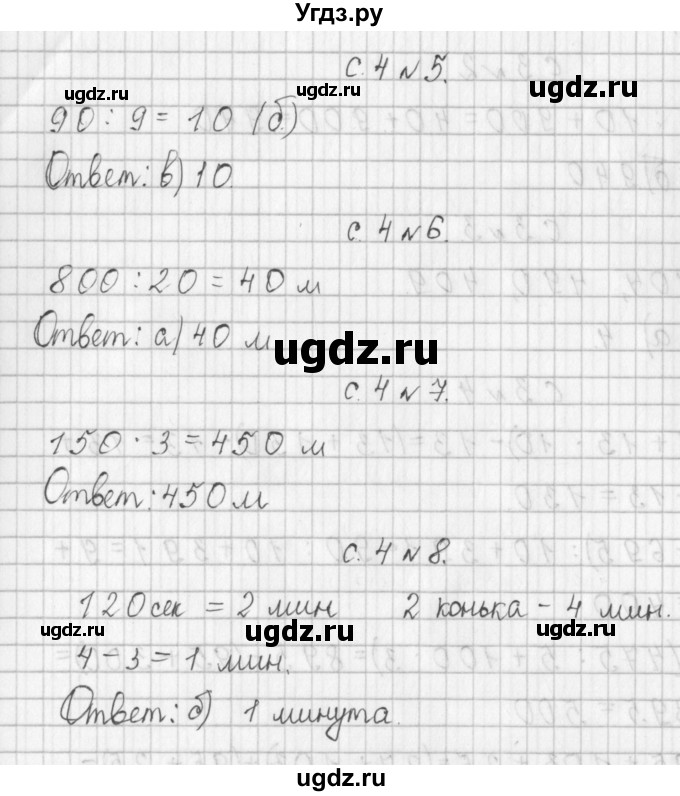 Угдз.ру
с. 4 № 5.
ugdz.ru
ugdz.ru
ugdz.ru
90 : 9 = 10 (б.)
Ответ: в) 10
с. 4 № 6.
800 : 20 = 40 м
Ответ: а) 40 м
ugdz.ru
с. 4 № 7.
150 · 3 = 450 м
Ответ: 450 м
с. 4 № 8.
120 сек = 2 мин 2 конька - 4 мин.
ugdz.ru
ugdz.ru
ugdz.ru
4 - 3 = 1 мин.
Ответ: б) 1 минута.
ugdz.ru